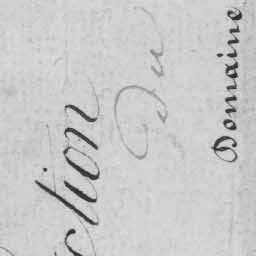 ction
Du
Domaine